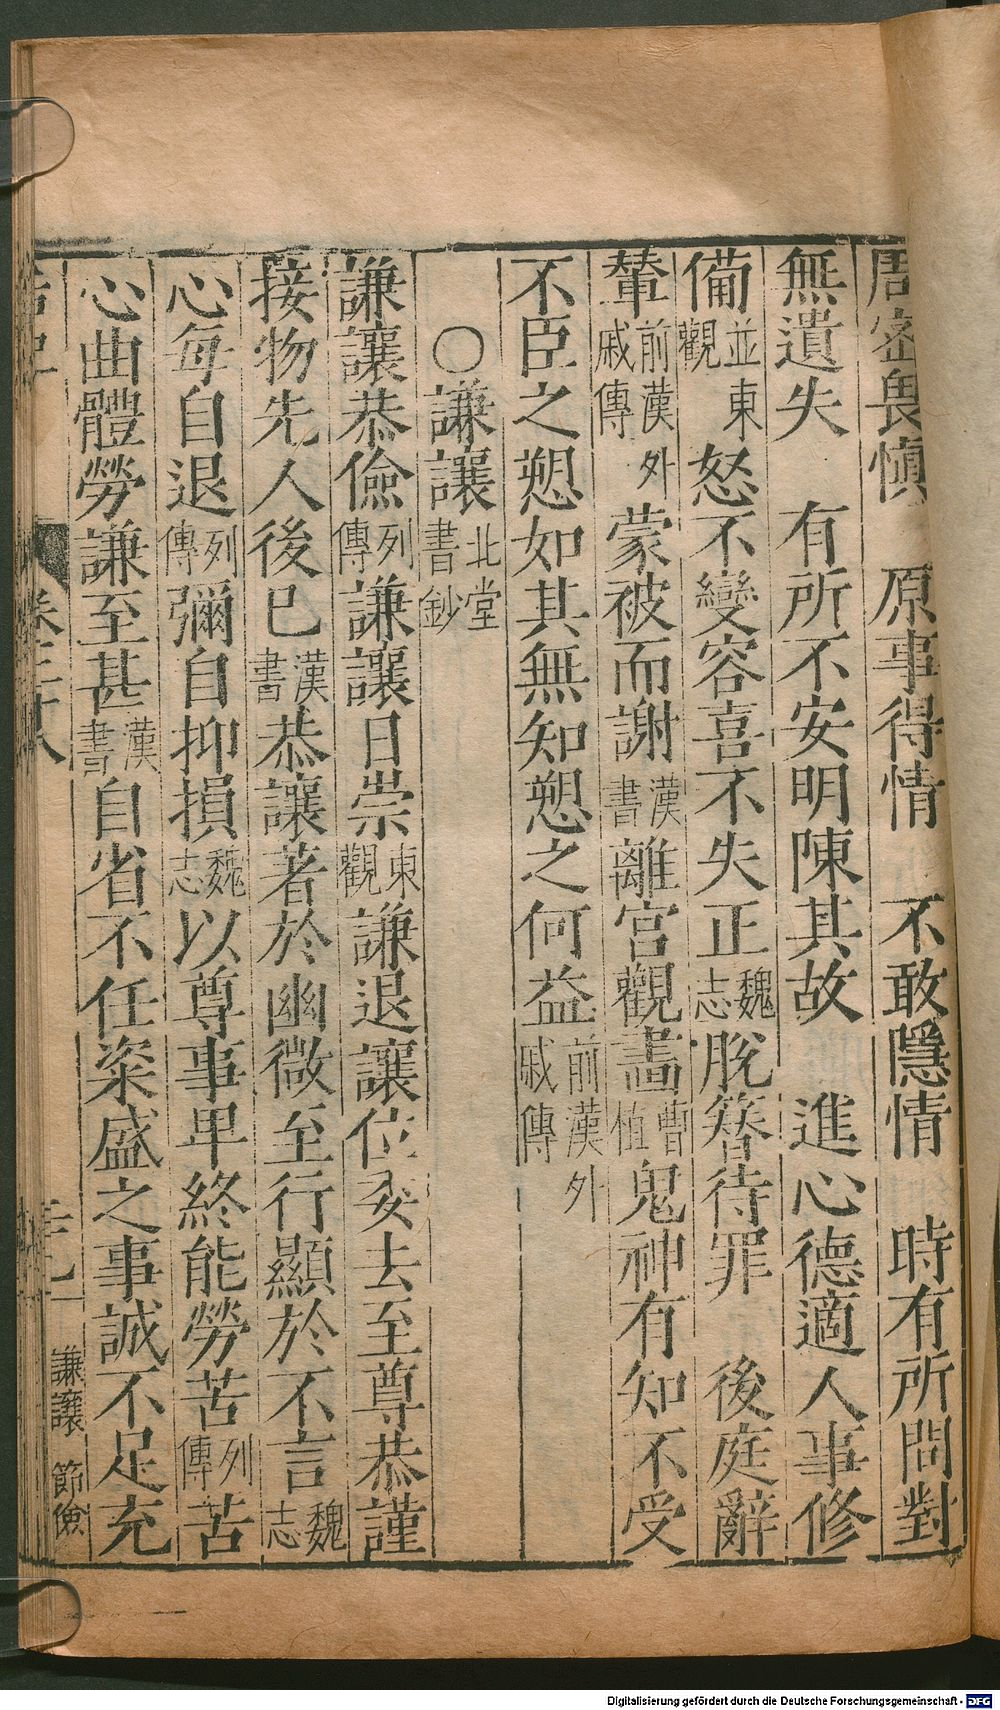 周密畏慎　原事得情　不敢隱情　時有所問對
無遺失　有所不安明陳其故　進心德適人事修
備並東觀怒不變容喜不失正魏志脫簪待罪　後庭辭
輦前漢外戚傳蒙被而謝漢書離宮觀畵曹植鬼神有知不受
不臣之愬如其無知愬之何益前漢外戚傳
○謙讓北堂書鈔
謙讓恭儉列傳謙讓日崇東觀謙退讓位委去至尊恭謹
接物先人後已漢書恭讓著於幽微至行顯於不言魏志
心每自退列傳彌自抑損魏志以尊事卑終能勞苦列傳苦
心曲體勞謙至甚漢書自省不任粢盛之事誠不足充
謙讓　節儉
Digitalisierung gefördert durch die Deutsche Forschungsgemeinschaft - DFG